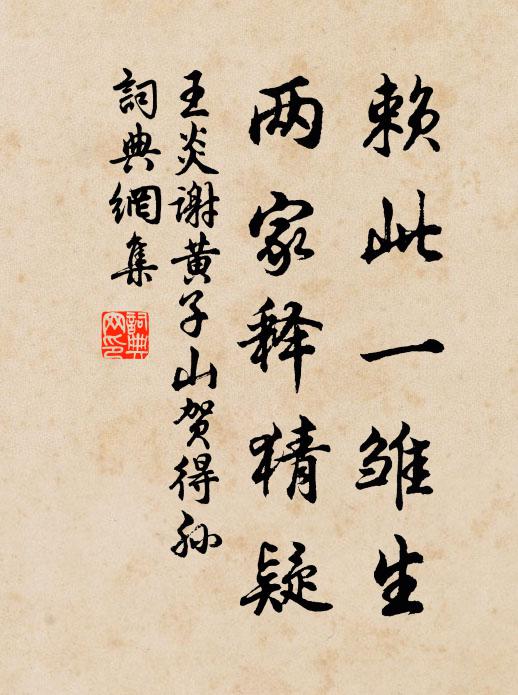 赖此一雏生
两家释猜疑
王炎谢黄子山贺得孙
词典網集
詞典